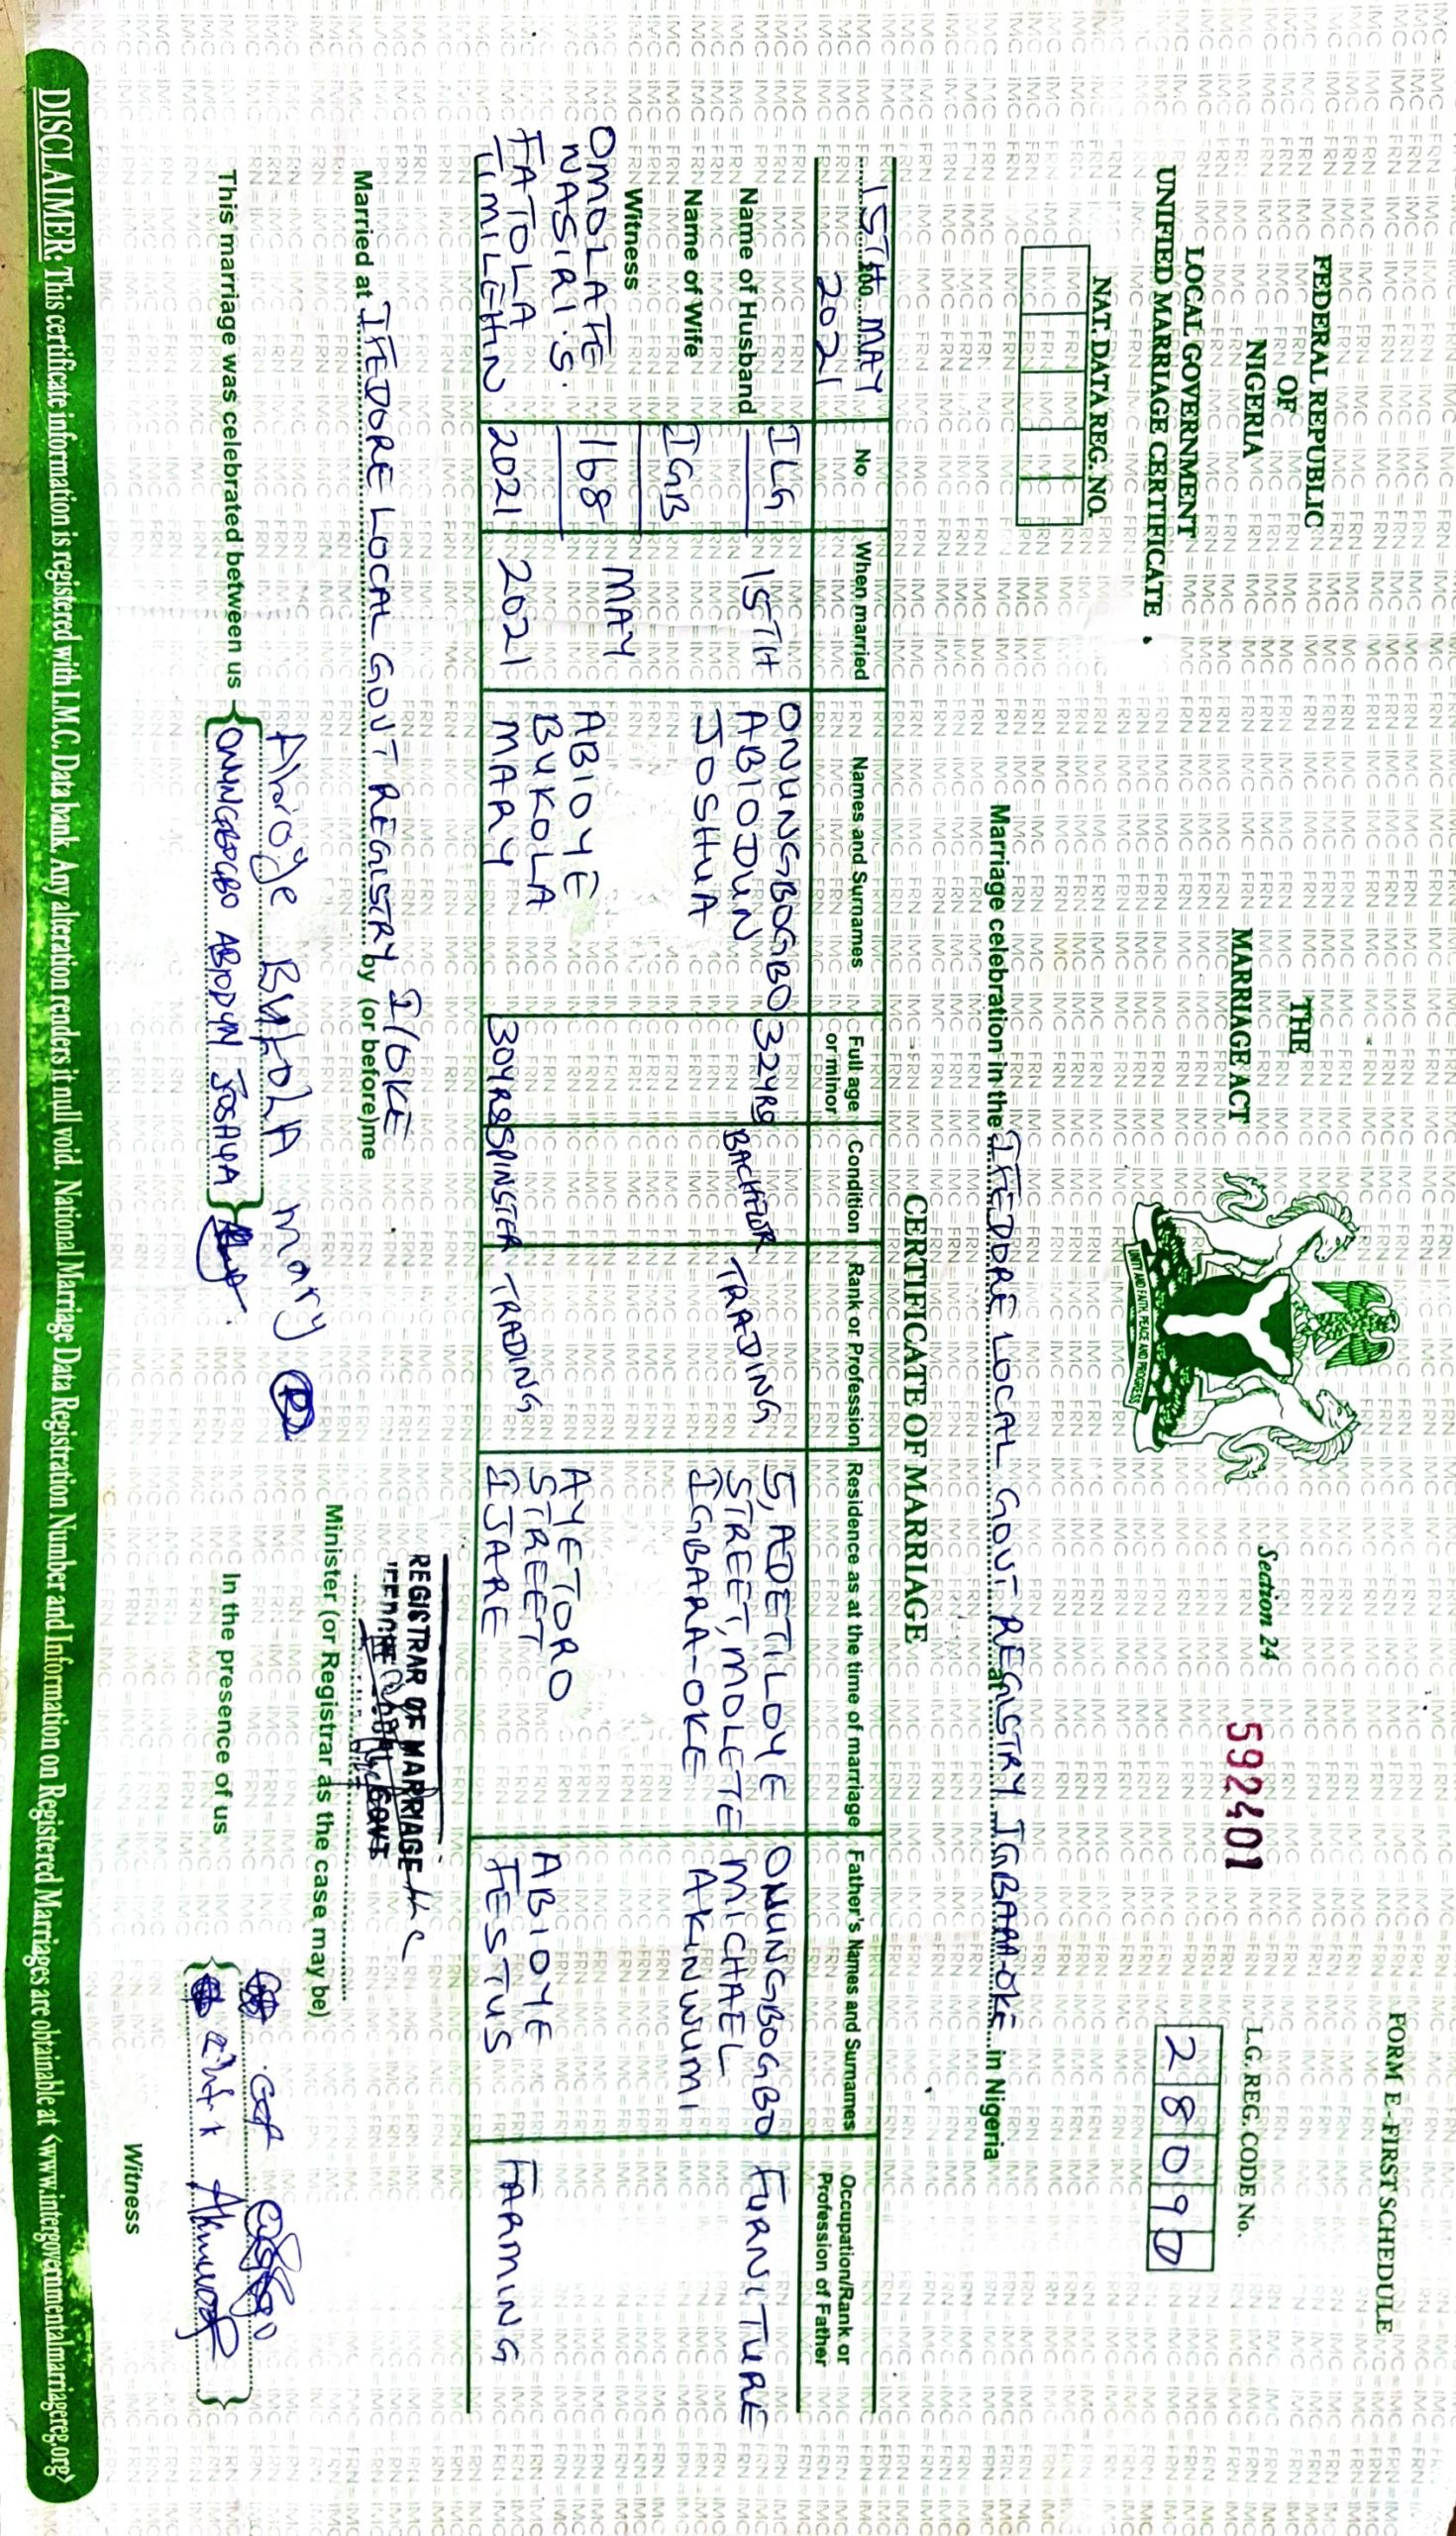 FORM E - FIRST SCHEDULE
FEDERAL REPUBLIC
OF
NIGERIA
THE
MARRIAGE ACT
Section 24
592401
L.G. REG. CODE No.
2 8 0 9 D
LOCAL GOVERNMENT
UNIFIED MARRIAGE CERTIFICATE
UNITY AND FAITH, PEACE AND PROGRESS
NAT. DATA REG. NO.
Marriage celebration in the IFEDORE LOCAL GOVT REGISTRY IGBARA-OKE in Nigeria
CERTIFICATE OF MARRIAGE
15TH MAY
2021
No
When married
Names and Surnames
Full age or minor
Condition
Rank or Profession
Residence as at the time of marriage
Father's Names and Surnames
Occupation/Rank or Profession of Father
Name of Husband
ILG
15TH
ONUNGBOGBO
ABIODUN
JOSHUA
32YRS
BACHELOR
TRADING
5, ADETILOYE
STREET, MOLETE
IGBARA-OKE
ONUNGBOGBO
MICHAEL
AKINWUMI
FURNITURE
Name of Wife
IGB
Witness
OMOLAFE
NASIRI.S.
FATOLA
TIMILEHIN
168
2021
MAY
2021
ABIOYE
BUKOLA
MARY
30YRS
SPINSTER
TRADING
AYETORO
STREET
IJARE
ABIOYE
FESTUS
FARMING
Married at IFEDORE LOCAL GOVT REGISTRY I/OKE by (or before)me
REGISTRAR OF MARRIAGE
Minister (or Registrar as the case may be)
This marriage was celebrated between us
Abioye Bukola Mary
ONUNGBOGBO ABIODUN JOSHUA
In the presence of us
Witness
DISCLAIMER: This certificate information is registered with I.M.C. Data bank, Any alteration renders it null void. National Marriage Data Registration Number and Information on Registered Marriages are obtainable at <www.intergovernmentalmarriagereg.org>